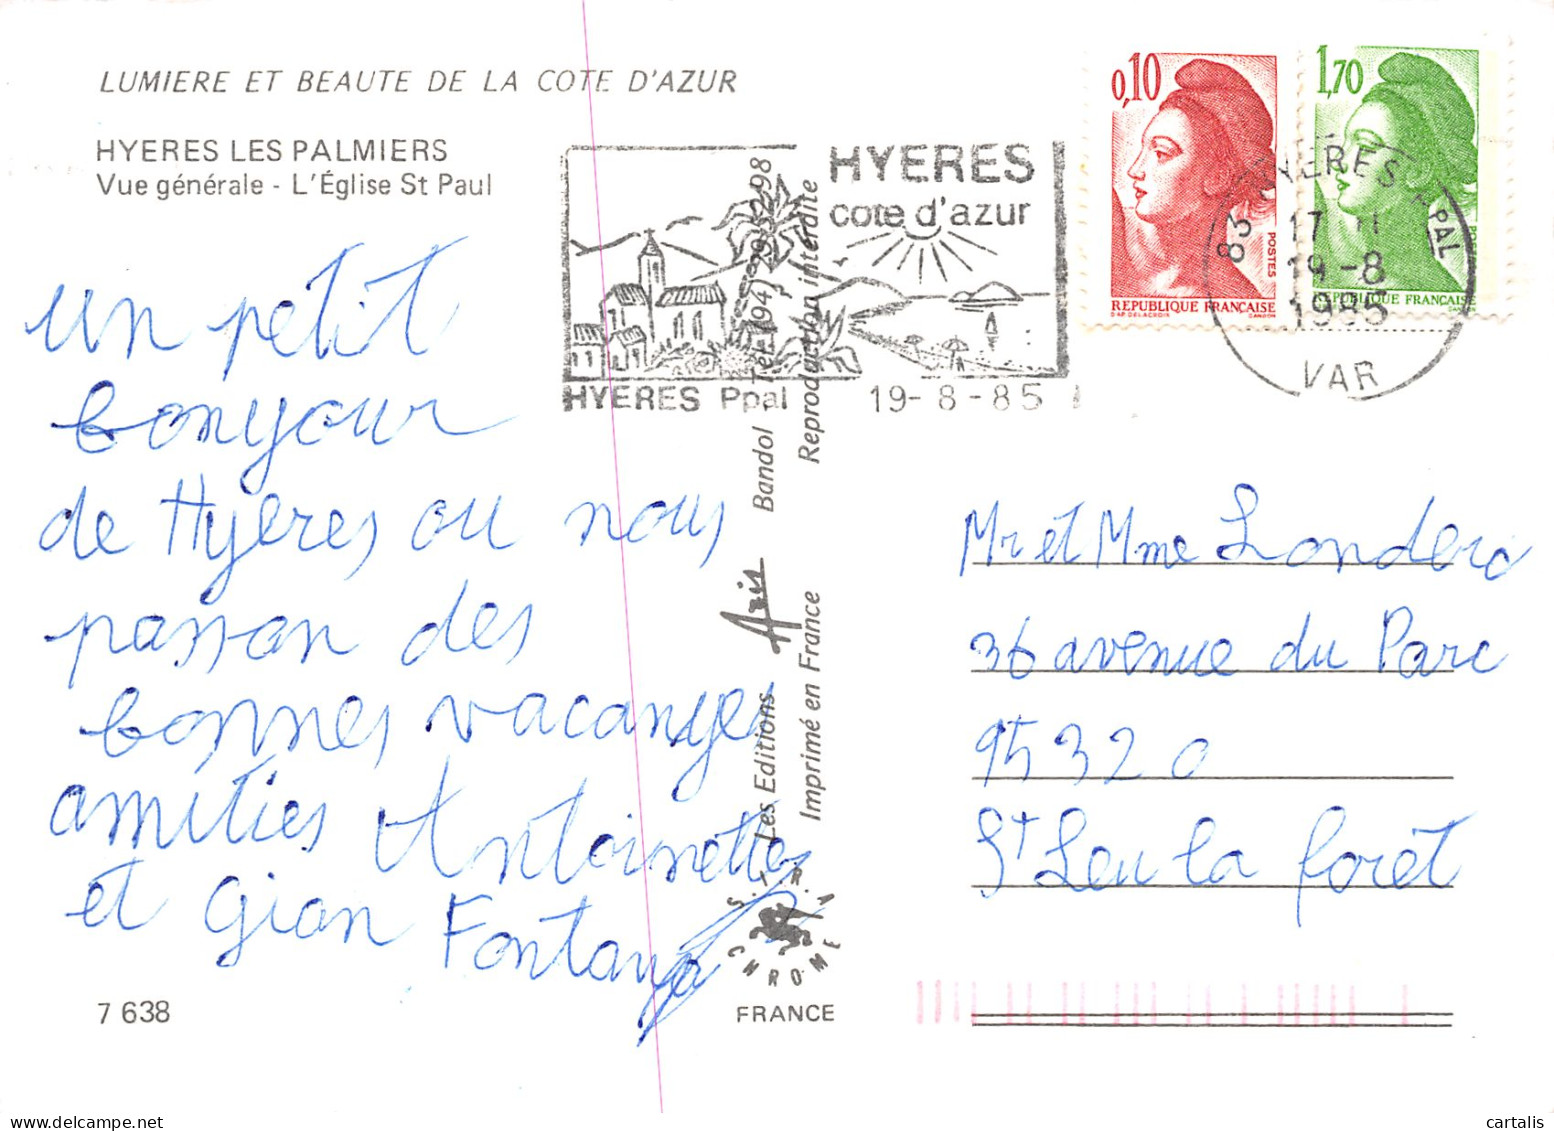 LUMIERE ET BEAUTE DE LA COTE D'AZUR
HYERES LES PALMIERS
Vue générale - L'Église St Paul
un petit
bonjour
de Hyeres ou nous
passon des
bonnes vacanges
amities Antoinette
et Gian Fontana
7 638
HYERES
cote d'azur
HYERES Ppal 19-8-85
Les Editions Aris Bandol - Tél. (94) 29.32.98
Imprimé en France Reproduction interdite
S.T.R.A
CHROME
FRANCE
0,10
POSTES
REPUBLIQUE FRANÇAISE
D'AP. DELACROIX GANDON
1,70
REPUBLIQUE FRANÇAISE
83 HYERES PPAL
17 H
19-8
1985
VAR
Mr et Mme Londero
36 avenue du Parc
95320
St Leu la forêt
cartalis